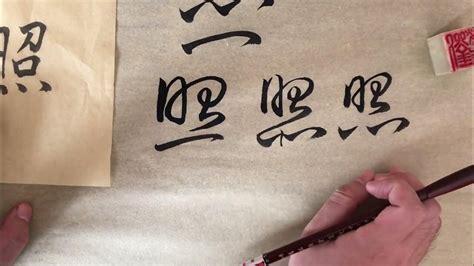 照
照
照 照 照